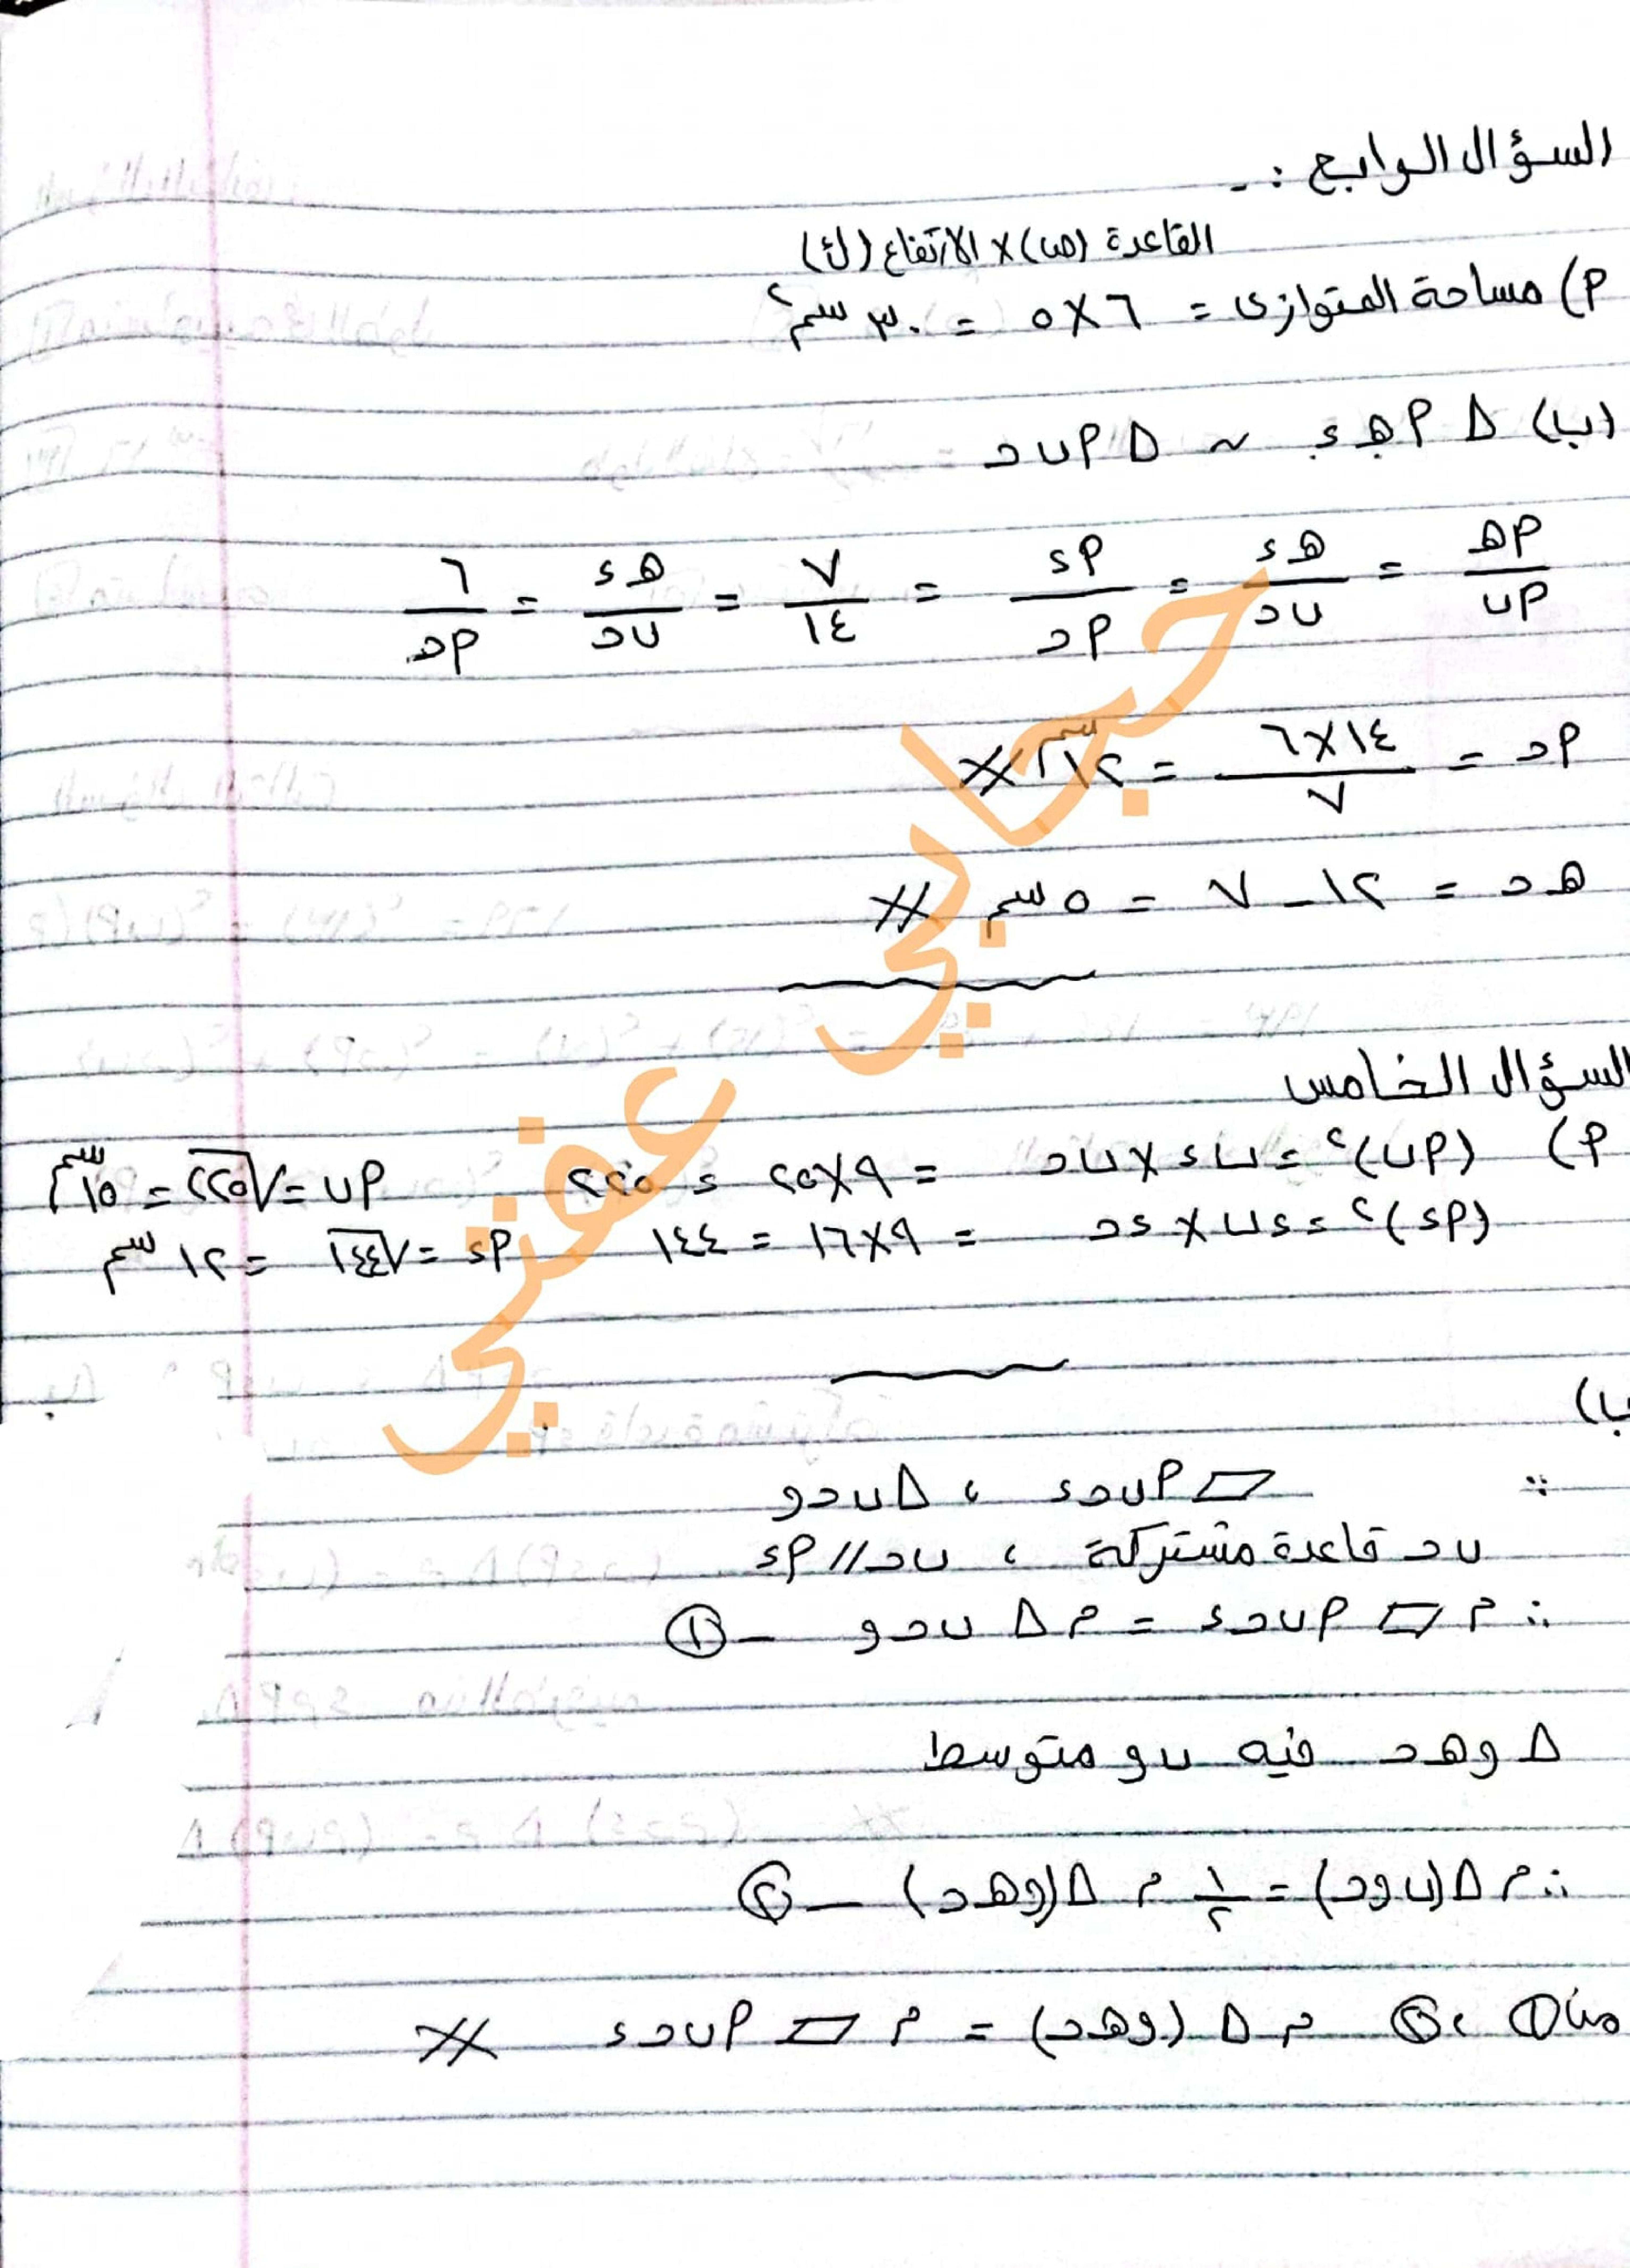 السؤال الرابع :-
القاعدة (ص) × الارتفاع (ك)
م) مساحة المتوازى = ٦ × ٥ = ٣٠ سم٢
(ب) Δ م هـ ء ~ Δ م ب حـ
م هـ / م ب = هـ ء / ب حـ = م ء / م حـ = ٧ / ١٤ = هـ ء / ب حـ = ٦ / م حـ
م حـ = ١٤ × ٦ / ٧ = ١٢ سم
هـ حـ = ١٢ - ٧ = ٥ سم
السؤال الخامس
م) (م ب)٢ = ب ء × ب حـ = ٩ × ٢٥ = ٢٢٥ م ب = √٢٢٥ = ١٥ سم
(م ء)٢ = ء ب × ء حـ = ٩ × ١٦ = ١٤٤ م ء = √١٤٤ = ١٢ سم
ب)
∵ ▱ م ب حـ ء ، Δ ب حـ و
ب حـ قاعدة مشتركة ، ب حـ // م ء
∴ م ▱ م ب حـ ء = م Δ ب حـ و - ①
Δ و هـ حـ فيه ب و متوسط
∴ م Δ (ب و حـ) = ١/٢ م Δ (و هـ حـ) - ②
من ① ، ② م Δ (و هـ حـ) = م ▱ م ب حـ ء
حجابي عفتي